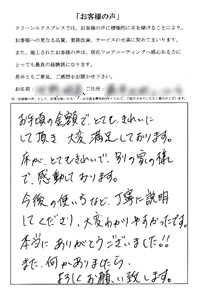 「お客様の声」
クリーンエクスプレスでは、お客様の声に積極的に耳を傾けることにより、
お客様への更なる品質、業務改善、サービスの充実に努めてまいります。
また、施工されたお客様の声は、現在フロアコーティングへ感心ある方に
とっても最良の経験談になります。
是非ともご意見、ご感想をお聞かせ下さい。
お名前
ご住所
お手頃な金額でとてもきれいに
して頂き大変満足しております。
床が、とてもきれいで、別の家の様
で、感動しております。
今後の使い方など、丁寧に説明
してくださり、大変わかりやすかったです。
本当にありがとうございました!!
また、何かありましたら、
よろしくお願い致します。